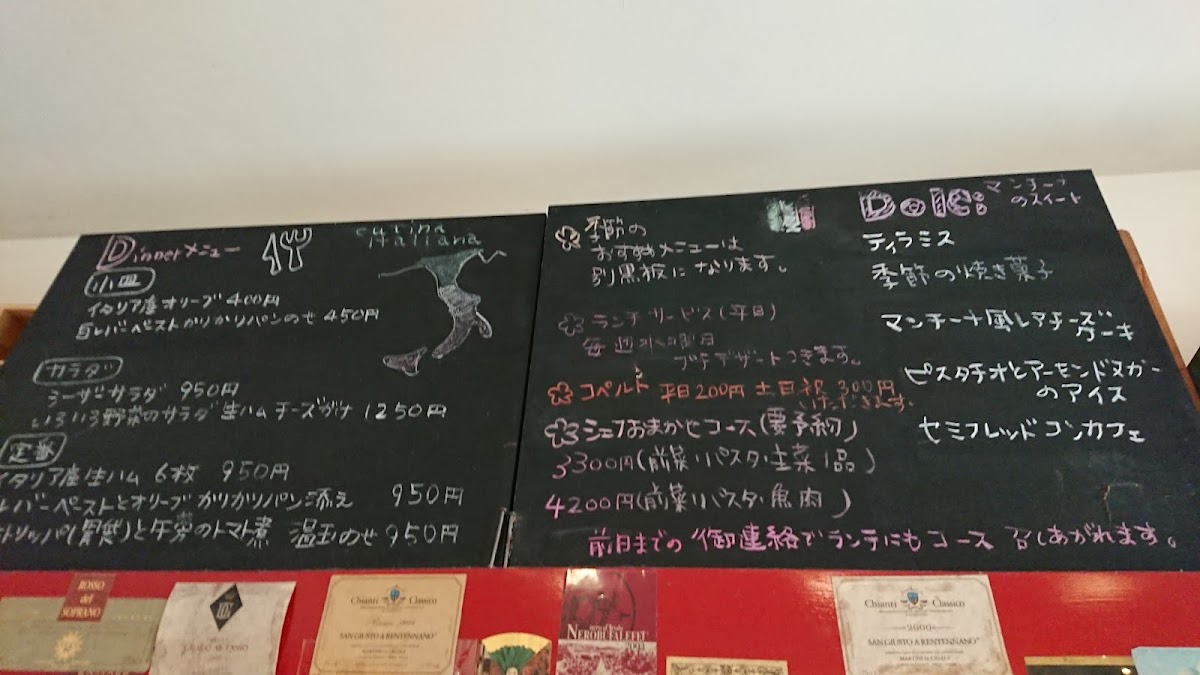 Dinnerメニュー
cucina
italiana
小皿
イタリア産オリーブ 400円
白レバーペーストガリガリパンのせ 450円
サラダ
シーザーサラダ 950円
いろいろ野菜のサラダ 生ハム チーズガケ 1250円
定番
イタリア産生ハム 6枚 950円
レバーペーストとオリーブ ガリガリパン添え 950円
トリッパ(胃袋)と牛労のトマト煮 温玉のせ 950円
季節の
おすすめメニューは
別黒板になります。
ランチサービス(平日)
毎週水曜日
プチデザートつきます。
コペルト 平日200円 土日祝 300円
いただきます。
シェフおまかせコース(要予約)
3300円(前菜・パスタ・主菜1品)
4200円(前菜・パスタ・魚・肉)
前日までの御連絡でランチにもコース召しあがれます。
Dolce
マンチーナ
のスイート
ティラミス
季節の焼き菓子
マンチーナ風レアチーズ
ケーキ
ピスタチオとアーモンドヌガー
のアイス
セミフレッドコンカフェ
ROSSO
del
SOPRANO
Chianti Classico
SAN GIUSTO A RENTENNANO
NEROBUFALEFFJ
Chianti Classico
2000
SAN GIUSTO A RENTENNANO